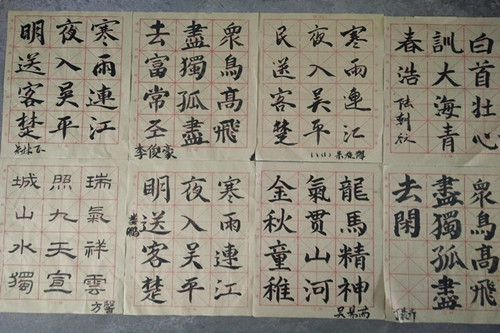 寒雨連江
夜入吴平
明送客楚
衆鳥髙飛
盡獨孤盡
去富常圣
李俊豪
寒雨連江
夜入吴平
民送客楚
白首壮心
訓大海青
春浩
瑞氣祥雲
照九天宣
城山水獨
方馨
寒雨連江
夜入吴平
明送客楚
龍馬精神
氣贯山河
金秋童稚
衆鳥髙飛
盡獨孤盡
去閉